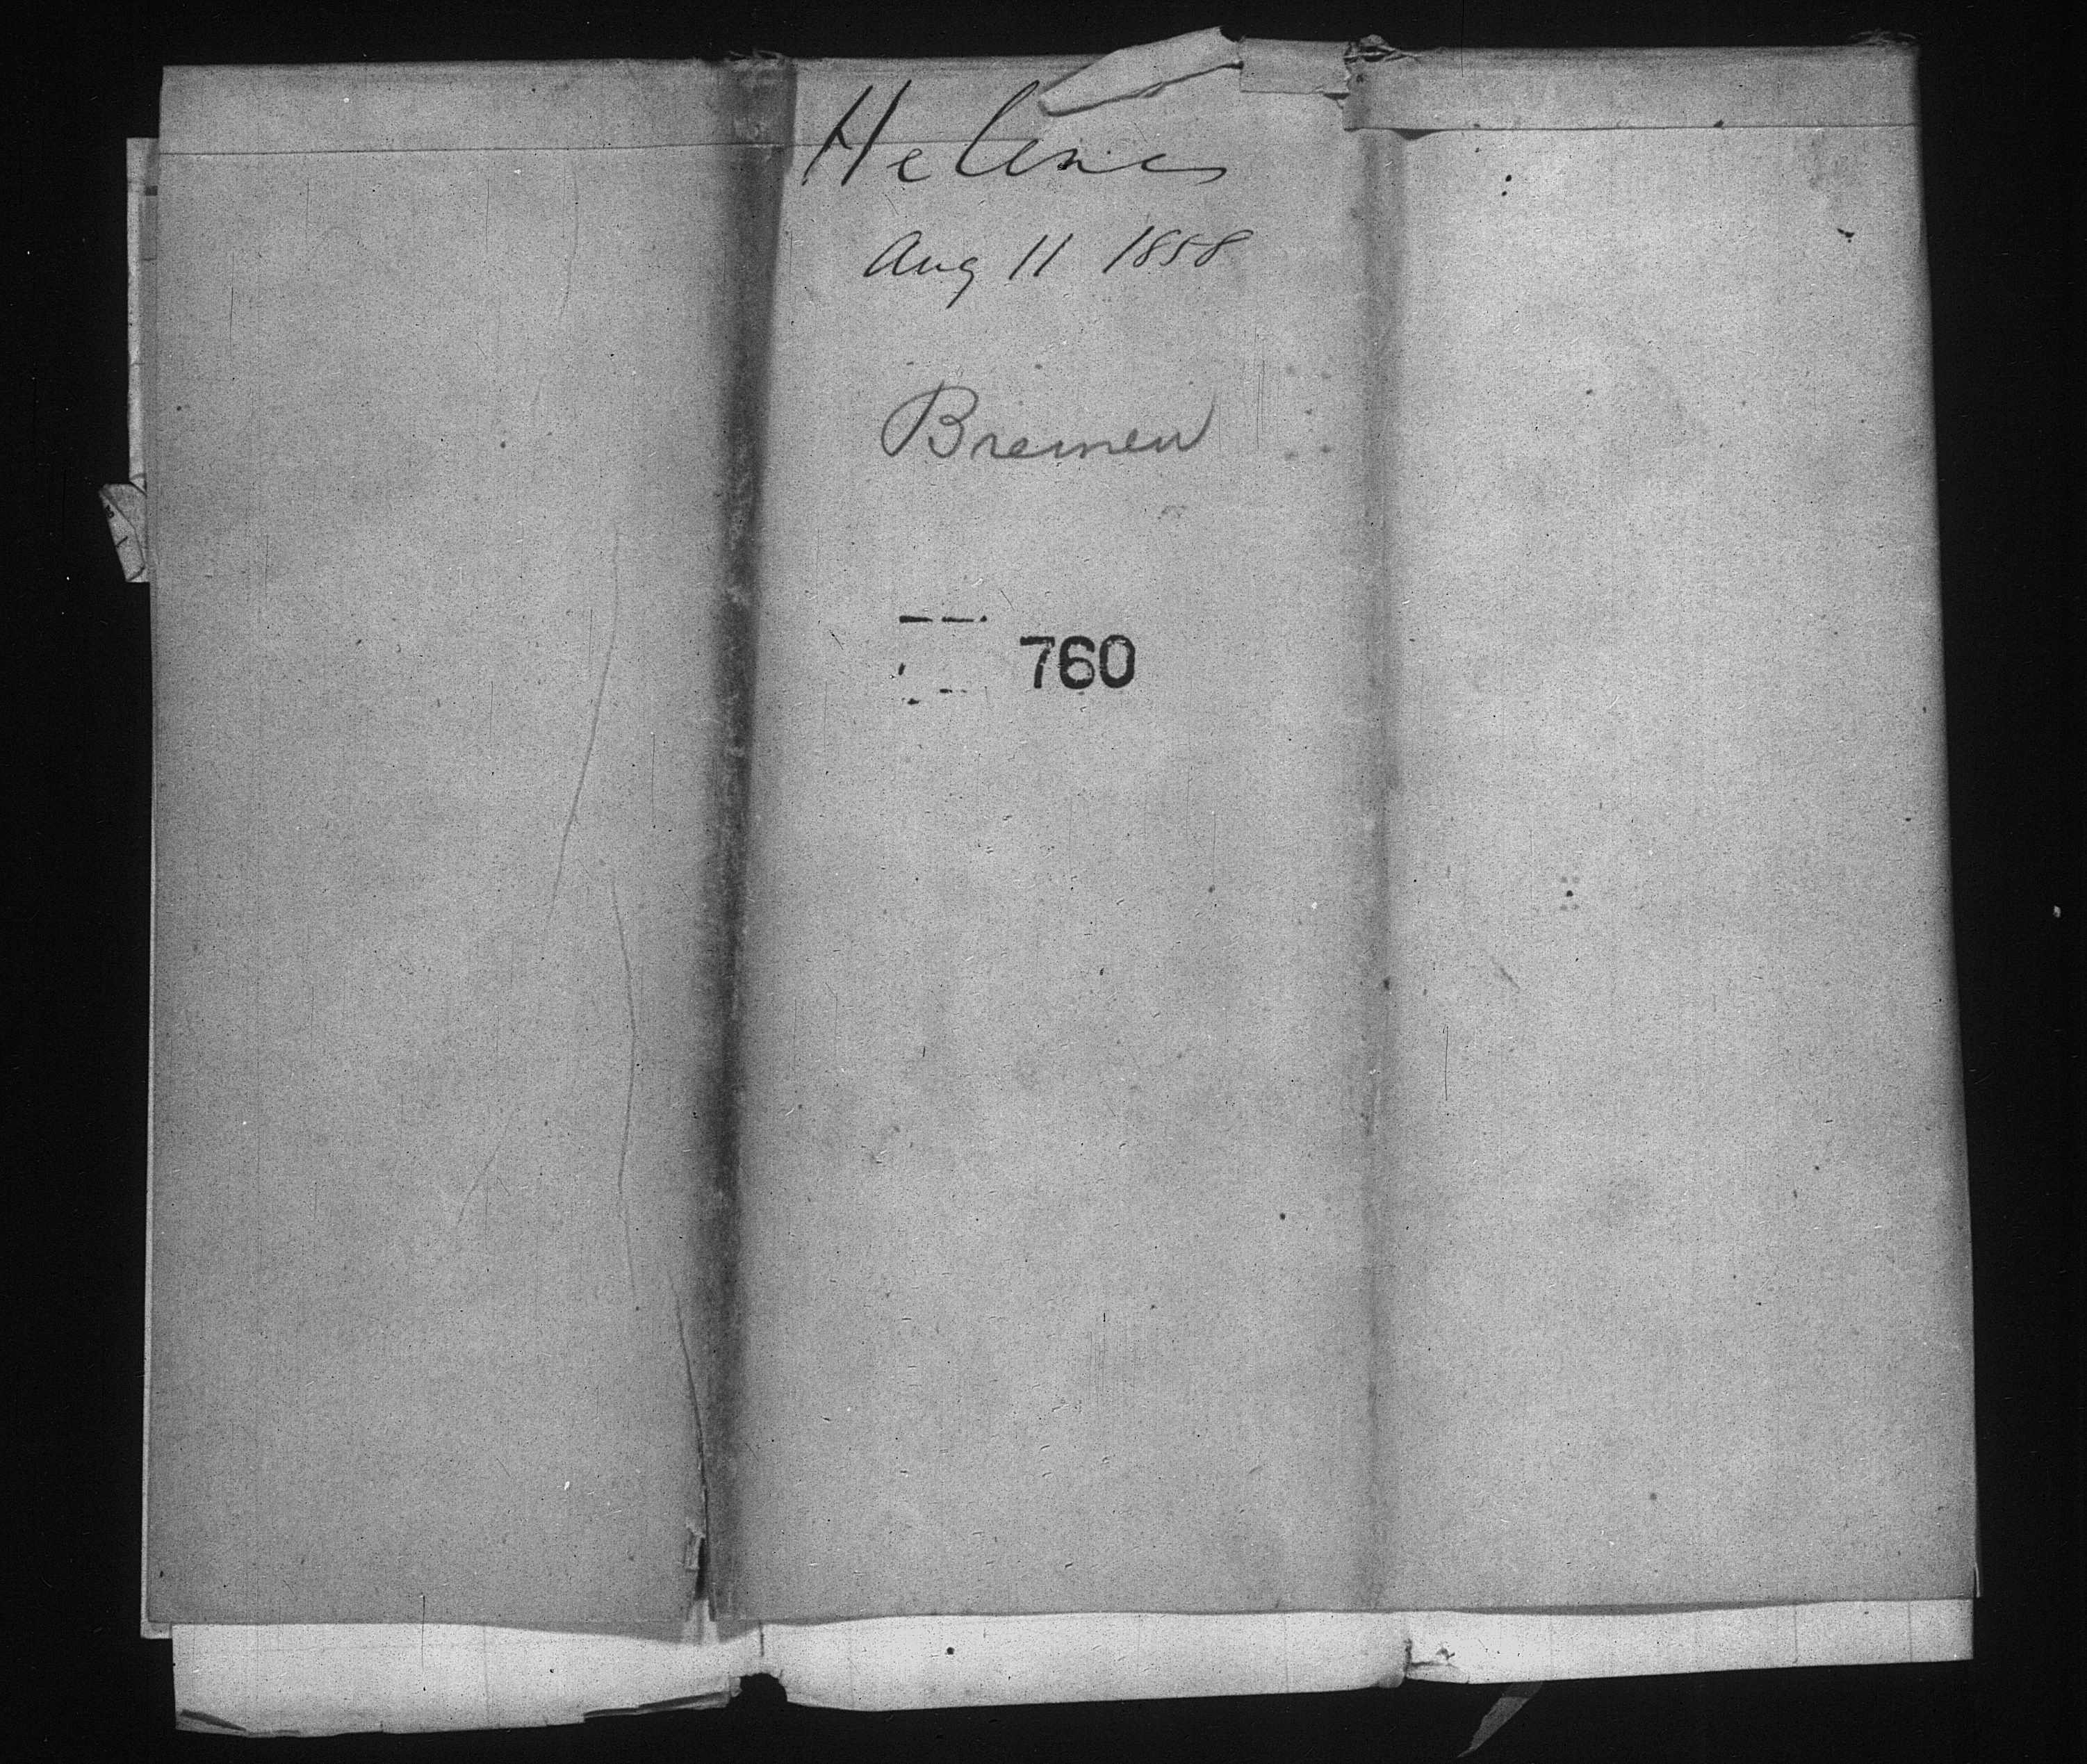 Helena
Aug 11 1858
Bremen
760